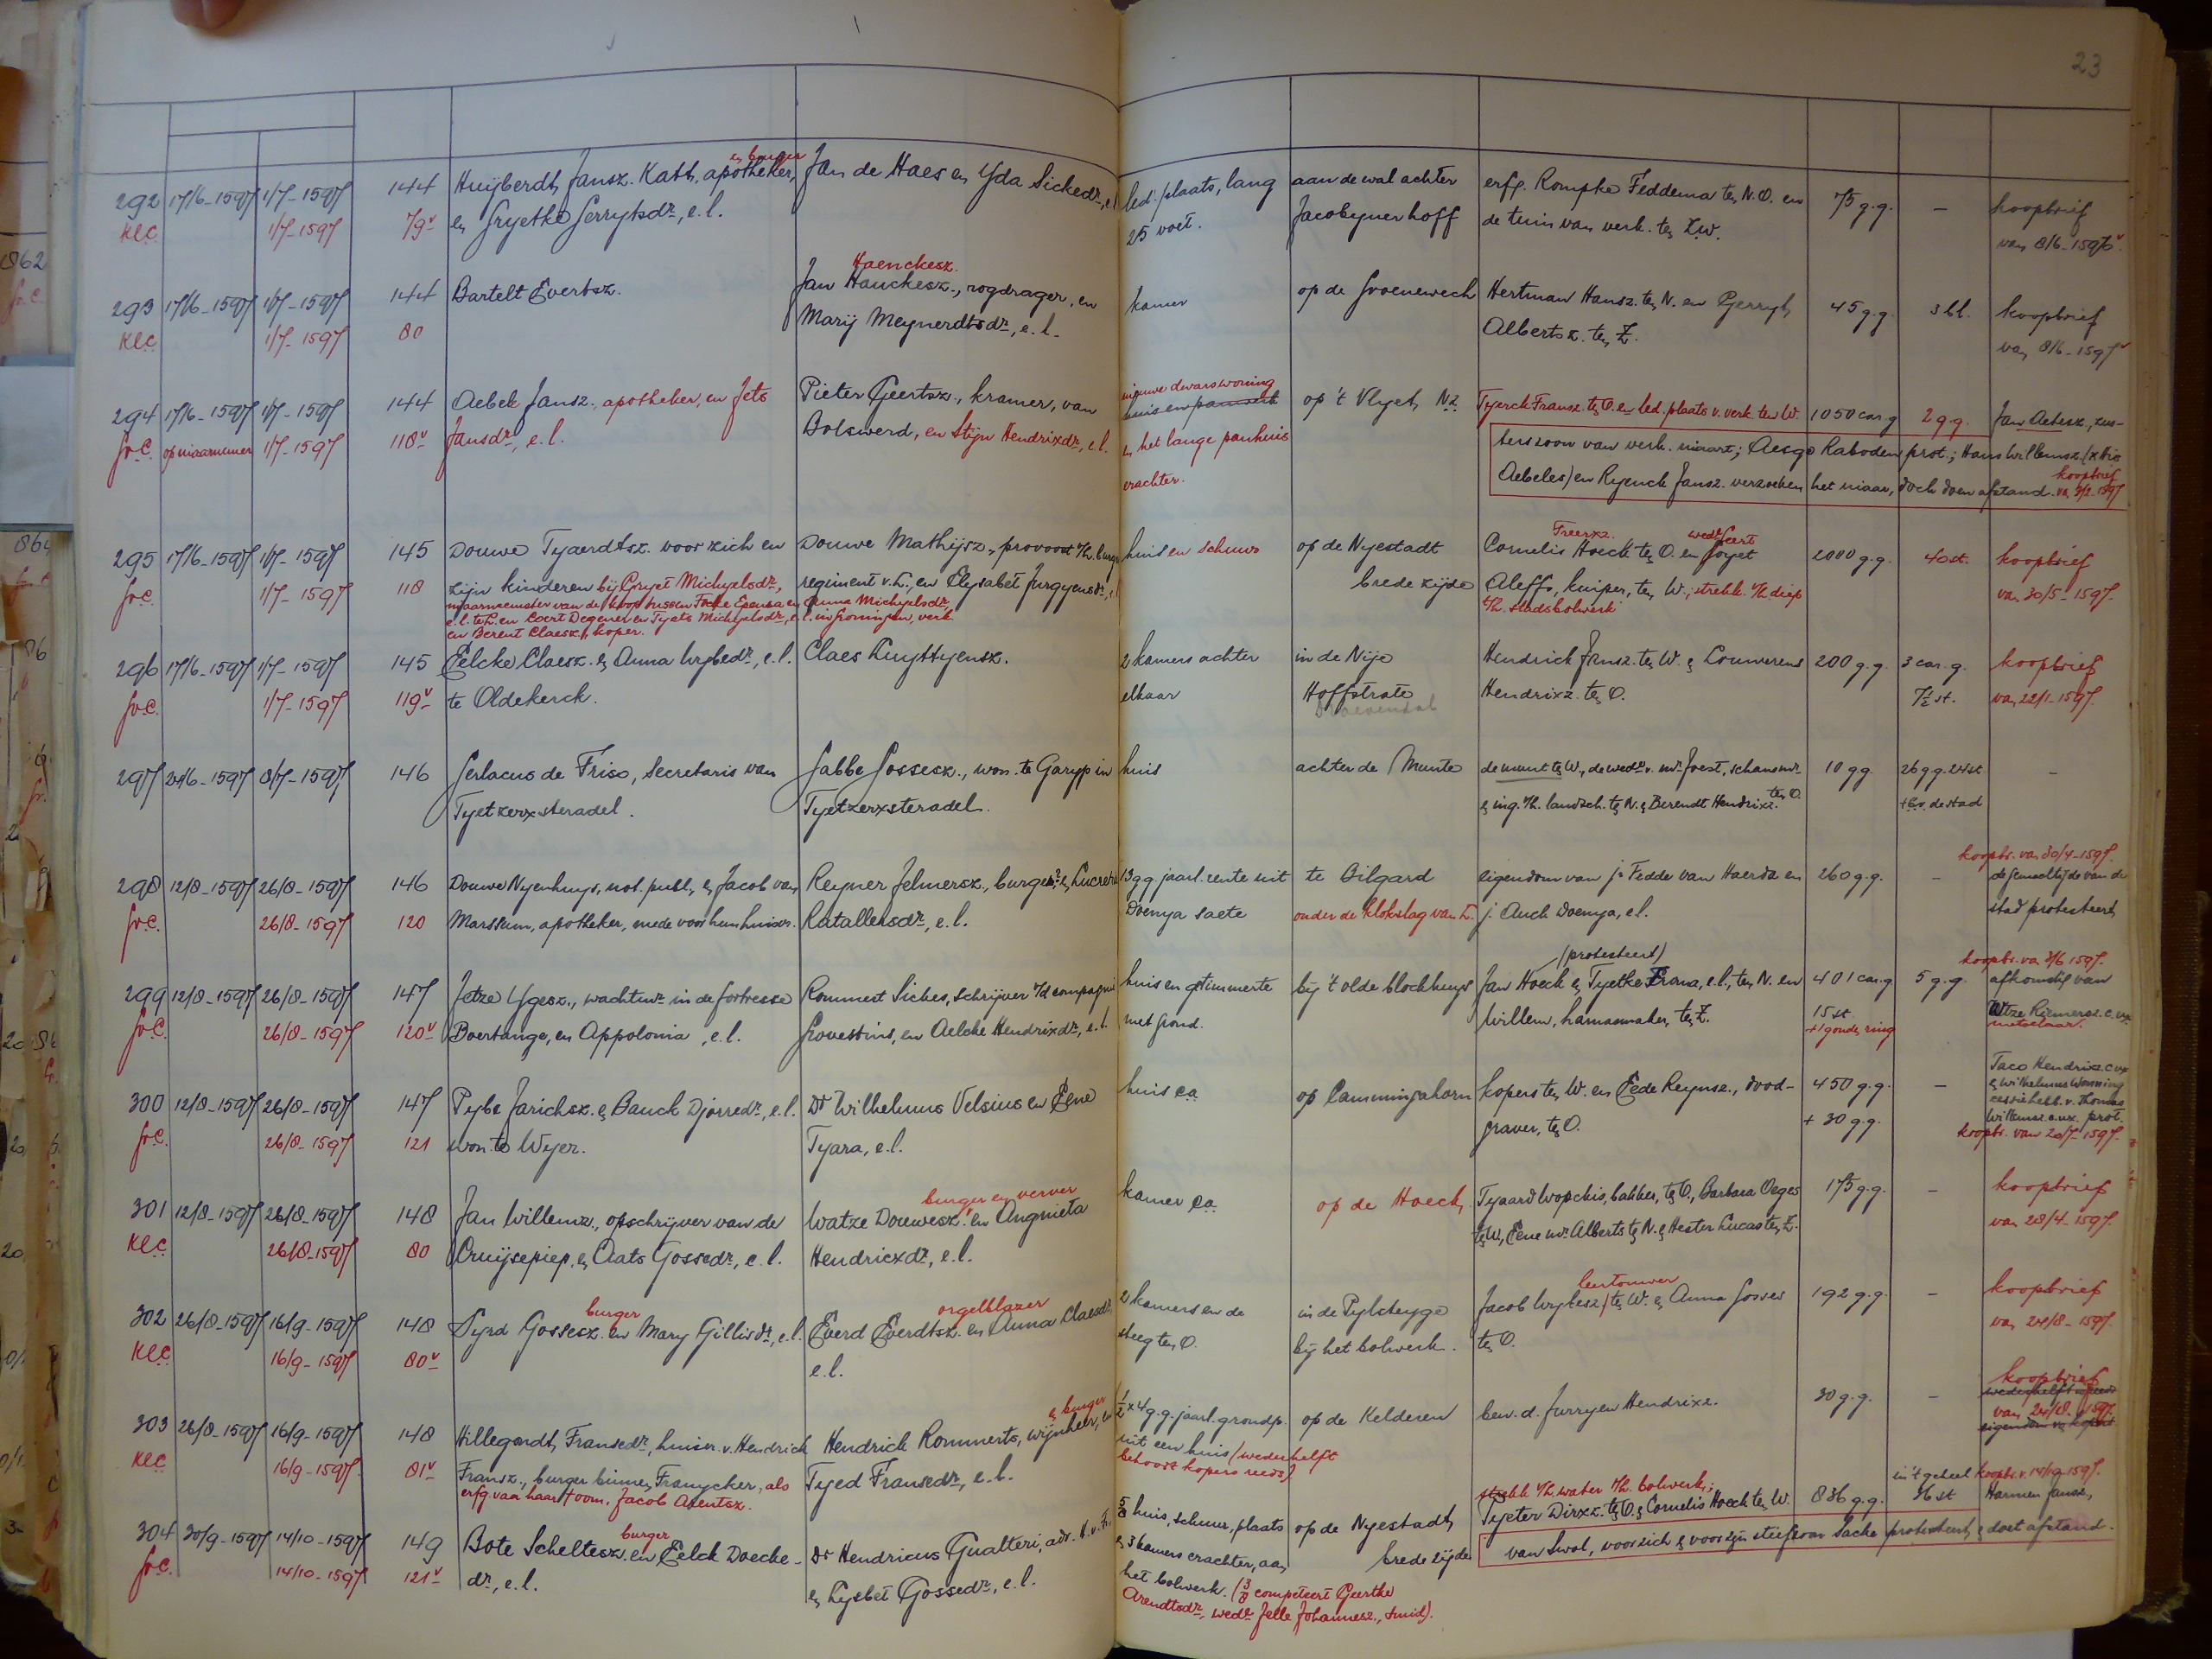 23
292 17/6-1597 1/7-1597 144 Huijberdt Jansz. Katt, apotheker, en burger Jan de Haes en Yda Sickedr., e.l. led. plaats, lang aan de wal achter erfg. Rompke Feddema ten N.O. en 75 g.g. – koopbrief
Kl.C. 1/7-1597 79v en Gryetke Gerrytsdr., e.l. 25 voet. Jacobyner hoff de tuin van verk. ten Z.W. van 8/6-1597
Haenckesz.
293 17/6-1597 1/7-1597 144 Bartelt Evertsz. Jan Hanckesz., rogdrager, en kamer op de Groenewech Hertman Hansz. ten N. en Gerryt 45 g.g. 3 ll. koopbrief
Kl.C. 1/7-1597 80 Marij Meynerdtsdr., e.l. Albertsz. ten Z. van 8/6-1597
nieuwe dwarswoning
294 17/6-1597 1/7-1597 144 Aebele Jansz., apotheker, en Jets Pieter Geertsz., kramer, van huis en panwerk op 't Vlyet NZ. Tyerck Fransz. ten O. en led. plaats v. verk. ten W. 1050 car.g. 2 g.g. Jan Aebesz., zus-
Gr.C. op niaarnemer 1/7-1597 118v Jansdr., e.l. Bolswerd, en Stijn Hendrixdr., e.l. en het lange panhuis terszoon van verk. niaart; Aesge Raboden prot.; Hans Willemsz. (x Bis
erachter. Aebeles) en Ryenck Jansz. verzoeken het niaar, doch doen afstand. koopbrief
Freerxz. wede Geert
295 17/6-1597 1/7-1597 145 Douwe Tyaerdtsz. voor zich en Douwe Mathijsz., provoost v/h. burger huis en schuur op de Nyestadt Cornelis Hoeck ten O. en Joyet 2000 g.g. 40 st. koopbrief
Gr.C. 1/7-1597 118 zijn kinderen bij Gryet Michyelsdr., regiment v. L., en Elysabet Jurgyensdr., e.l. brede zijde Aleffs, kuiper, ten W., strekk. v/h. diep van 30/5-1597.
niaarnemer van de koop tussen Focke Epensa en Anna Michyelsdr. t/h. stadsbolwerk
e.l. te L. en Coert Degener en Tyets Michyelsdr., e.l. in Groningen, verk.
en Berent Claesz., koper.
296 17/6-1597 1/7-1597 145 Eelcke Claesz. en Anna Wybedr., e.l. Claes Luyttyensz. 2 kamers achter in de Nije Hendrick Jansz. ten W. en Louwerens 200 g.g. 3 car.g. koopbrief
Gr.C. 1/7-1597 119v te Oldekerck. elkaar Hoffstrate Hendrixz. ten O. 7½ st. van 22/1-1597.
297 24/6-1597 8/7-1597 146 Gerlacus de Friso, Secretaris van Jabbe Gossesz., won. te Garyp in huis achter de Munte de munt ten W., de wede v. mr. Joest, schansmr. 10 gg. 26 g.g. 24 st –
Tyetzerxsteradel. Tyetzerxsteradel. en ing. v/h. landsch. ten N. en Berendt Hendrixz. ten O. de stad
koopbr. van 30/4-1597.
298 12/8-1597 26/8-1597 146 Douwe Nyenhuys, not. publ., en Jacob van Reyner Jelmersz., burger en Lucretia 13 gg jaarl. rente uit te Bilgard eigendom van jr. Fedde van Haerda en 260 g.g. – de gemechtijde van de
Gr.C. 26/8-1597 120 Marssum, apotheker, mede voor hun huisvr. Ratallersdr., e.l. Doenya saete onder de klokslag van L. j. Auck Doenya, e.l. stad protesteert
(protesteert) koopbr. van 3/6 1597.
299 12/8-1597 26/8-1597 147 Jetze Ygesz., wachtmr. in de fortresse Rommert Sickes, schrijver v/d compagnie huis en getimmerte bij 't olde blockhuys Jan Hoeck en Tyetke Frana, e.l., ten N. en 401 car.g. 5 g.g. afkomstig van
Gr.C. 26/8-1597 120v Boertange, en Appolonia , e.l. Grovestins, en Aelcke Hendrixdr., e.l. met grond. Willem, hamasmaker, ten Z. 15 st. Watze Riemersz. c. ux
+ 1 gouden ring metselaar.
300 12/8-1597 26/8-1597 147 Pybe Jarichsz. en Bauck Djorredr., e.l. Dr. Wilhelmus Velsius en Eene huis c.a. op Camminghahorn kopers ten W. en Eede Reynsz., dood- 450 g.g. – Taco Hendrixz. c. ux
Gr.C. 26/8-1597 121 won. te Wyer. Tyara, e.l. graver, ten O. + 30 g.g. en Wilhelmus Wonning
cessiehebb. v. Thomas
Willemsz. c. ux. prot.
koopbr. van 20/7-1597.
burger en verver
301 12/8-1597 26/8-1597 148 Jan Willemz., opschrijver van de Watze Douwesz. en Angnieta kamer c.a. op de Hoeck Tyaard Wopckis, bakker, ten O., Barbara Oeges 175 g.g. – koopbrief
Kl.C. 26/8-1597 80 Cruijsepiep, en Aats Gossedr., e.l. Hendricxdr., e.l. ten W., Eene mr. Alberts ten N. en Hester Lucas ten Z. van 28/4-1597.
burger orgelblazer
302 26/8-1597 16/9-1597 148 Syrd Gossesz. en Mary Gillisdr., e.l. Everd Everdtsz. en Anna Claesdr., 2 kamers en de in de Pylsteyge Jacob Wybesz. ten W. en Anna Gosses 192 g.g. – koopbrief
Kl.C. 16/9-1597 80v e.l. steeg ten O. bij het bolwerk. ten O. van 24/8-1597.
en burger koopbrief
303 26/8-1597 16/9-1597 148 Hillegondt Fransedr., huisvr. v. Hendrick Hendrick Rommerts, wijnheer, en ½ x 4 g.g. jaarl. grondp. op de Kelderen bew. d. Jurryen Hendrixz. 30 g.g. – van 24/8-1597.
Kl.C. 16/9-1597 81v Fransz., burger binnen Franycker, als Tyed Fransedr., e.l. uit een huis (wederhelft
erfg van haar † oom, Jacob Arentsz. behoort kopers reeds)
burger strekk v/h. water t/h. bolwerk; in 't geheel koopbr. v. 14/9-1597.
304 30/9-1597 14/10-1597 149 Bote Scheltesz. en Eelck Doecke- Dr. Hendricus Gualteri, adv. H.v.F. 5/8 huis, schuur, plaats op de Nyestadt Pyeter Dirxz. ten O. en Cornelis Hoeck ten W. 836 g.g. 36 st Harmen Jansz.,
Gr.C. 14/10-1597 121v dr., e.l. en Lysbet Gossedr., e.l. en 3 kamers erachter, aan brede zijde van Swol, voor zich en voor zijn stiefzoon Sacke protesteert, en doet afstand.
het bolwerk. (3/8 competeert Geertke
Arendtsdr., wede Jelle Johannesz., smid).